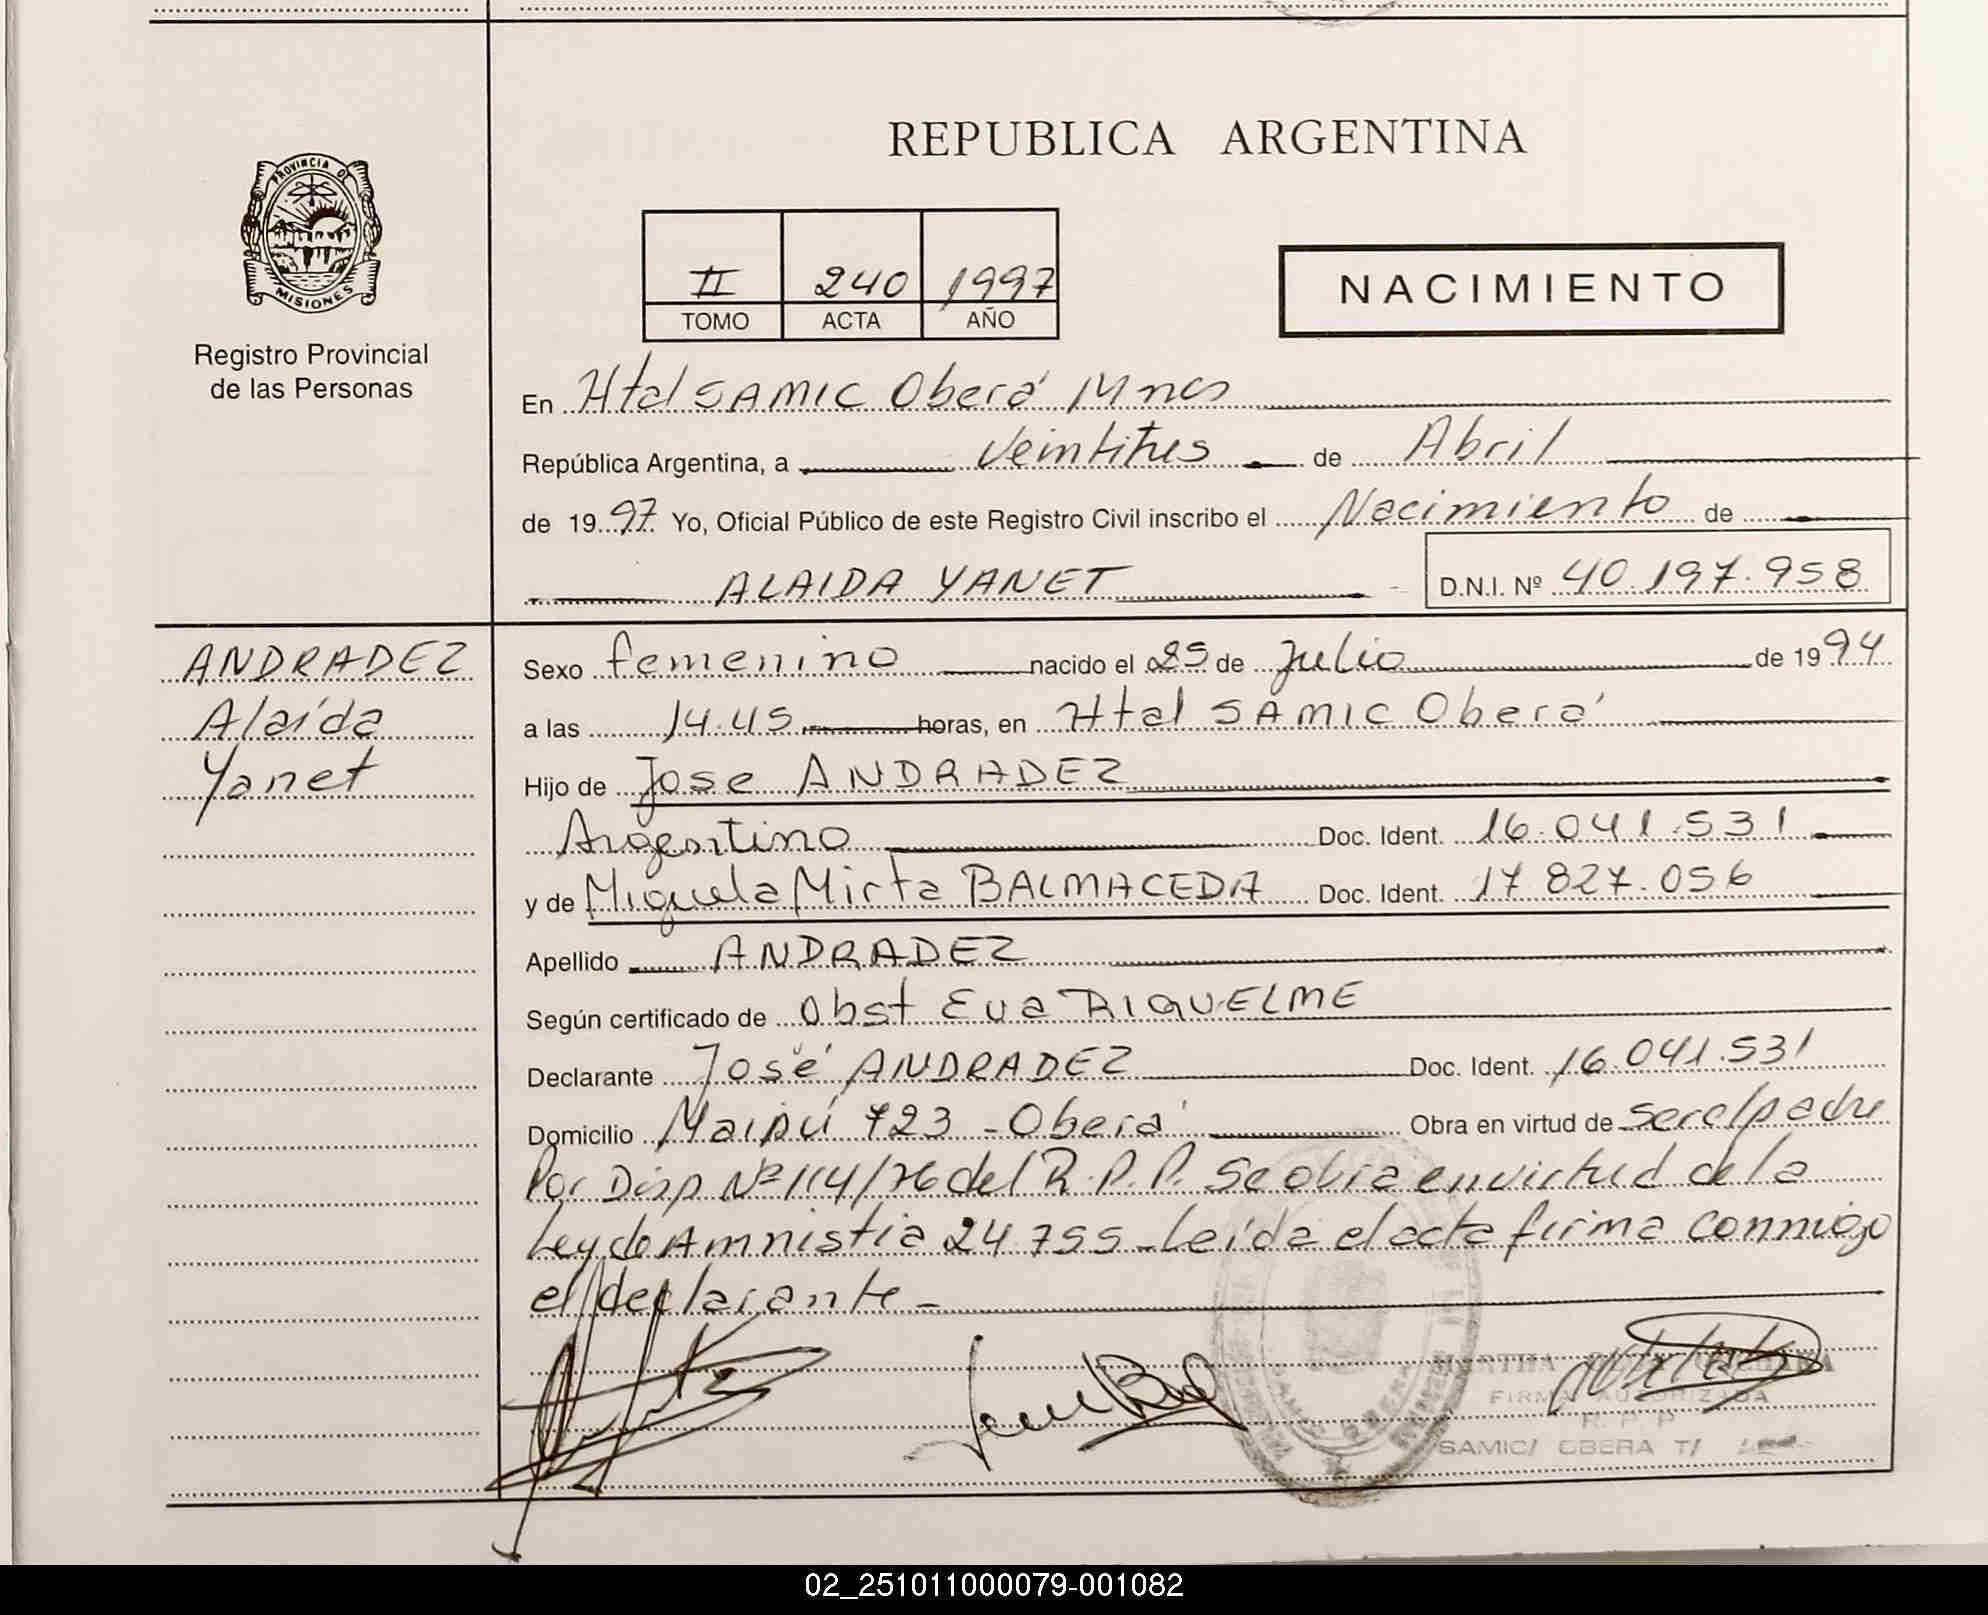 PROVINCIA DE
MISIONES
Registro Provincial
de las Personas
REPUBLICA ARGENTINA
II 240 1997
TOMO ACTA AÑO
NACIMIENTO
En Htal SAMIC Oberá Mnes
República Argentina, a veintitres de Abril
de 1997 Yo, Oficial Público de este Registro Civil inscribo el Nacimiento de
ALAIDA YANET D.N.I. Nº 40.197.958
ANDRADEZ
Alaída
Yanet
Sexo femenino nacido el 25 de Julio de 1994
a las 14.45 horas, en Htal SAMIC Oberá
Hijo de Jose ANDRADEZ
Argentino Doc. Ident. 16.041.531
y de Miguela Mirta BALMACEDA Doc. Ident. 17.827.056
Apellido ANDRADEZ
Según certificado de Obst Eva RIQUELME
Declarante José ANDRADEZ Doc. Ident. 16.041.531
Domicilio Maipú 723 - Oberá Obra en virtud de ser el padre
Por Disp Nº 114/76 del R.P.P. Se obra en virtud de la
Ley de Amnistia 24.755 - Leída el acta firma conmigo
el declarante -
MARTHA
FIRMA AUTORIZADA
R. P. P.
SAMIC/ OBERA T/
02_251011000079-001082